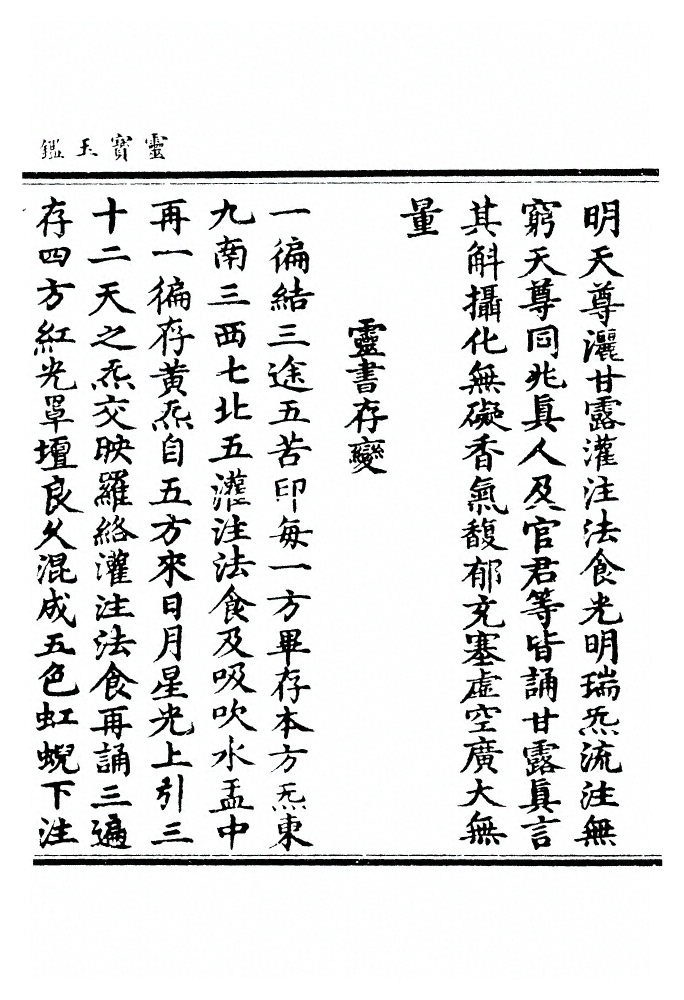 靈寳玉鑑
明天尊灑甘露灌注法食光明瑞炁流注無
窮天尊同兆眞人及官君等皆誦甘露眞言
其斛攝化無礙香氣馥郁充塞虛空廣大無
量
靈書存變
一徧結三途五苦印每一方畢存本方炁東
九南三西七北五灌注法食及吸吹水盂中
再一徧存黃炁自五方來日月星光上引三
十二天之炁交映羅絡灌注法食再誦三遍
存四方紅光罩壇良久混成五色虹蜺下注